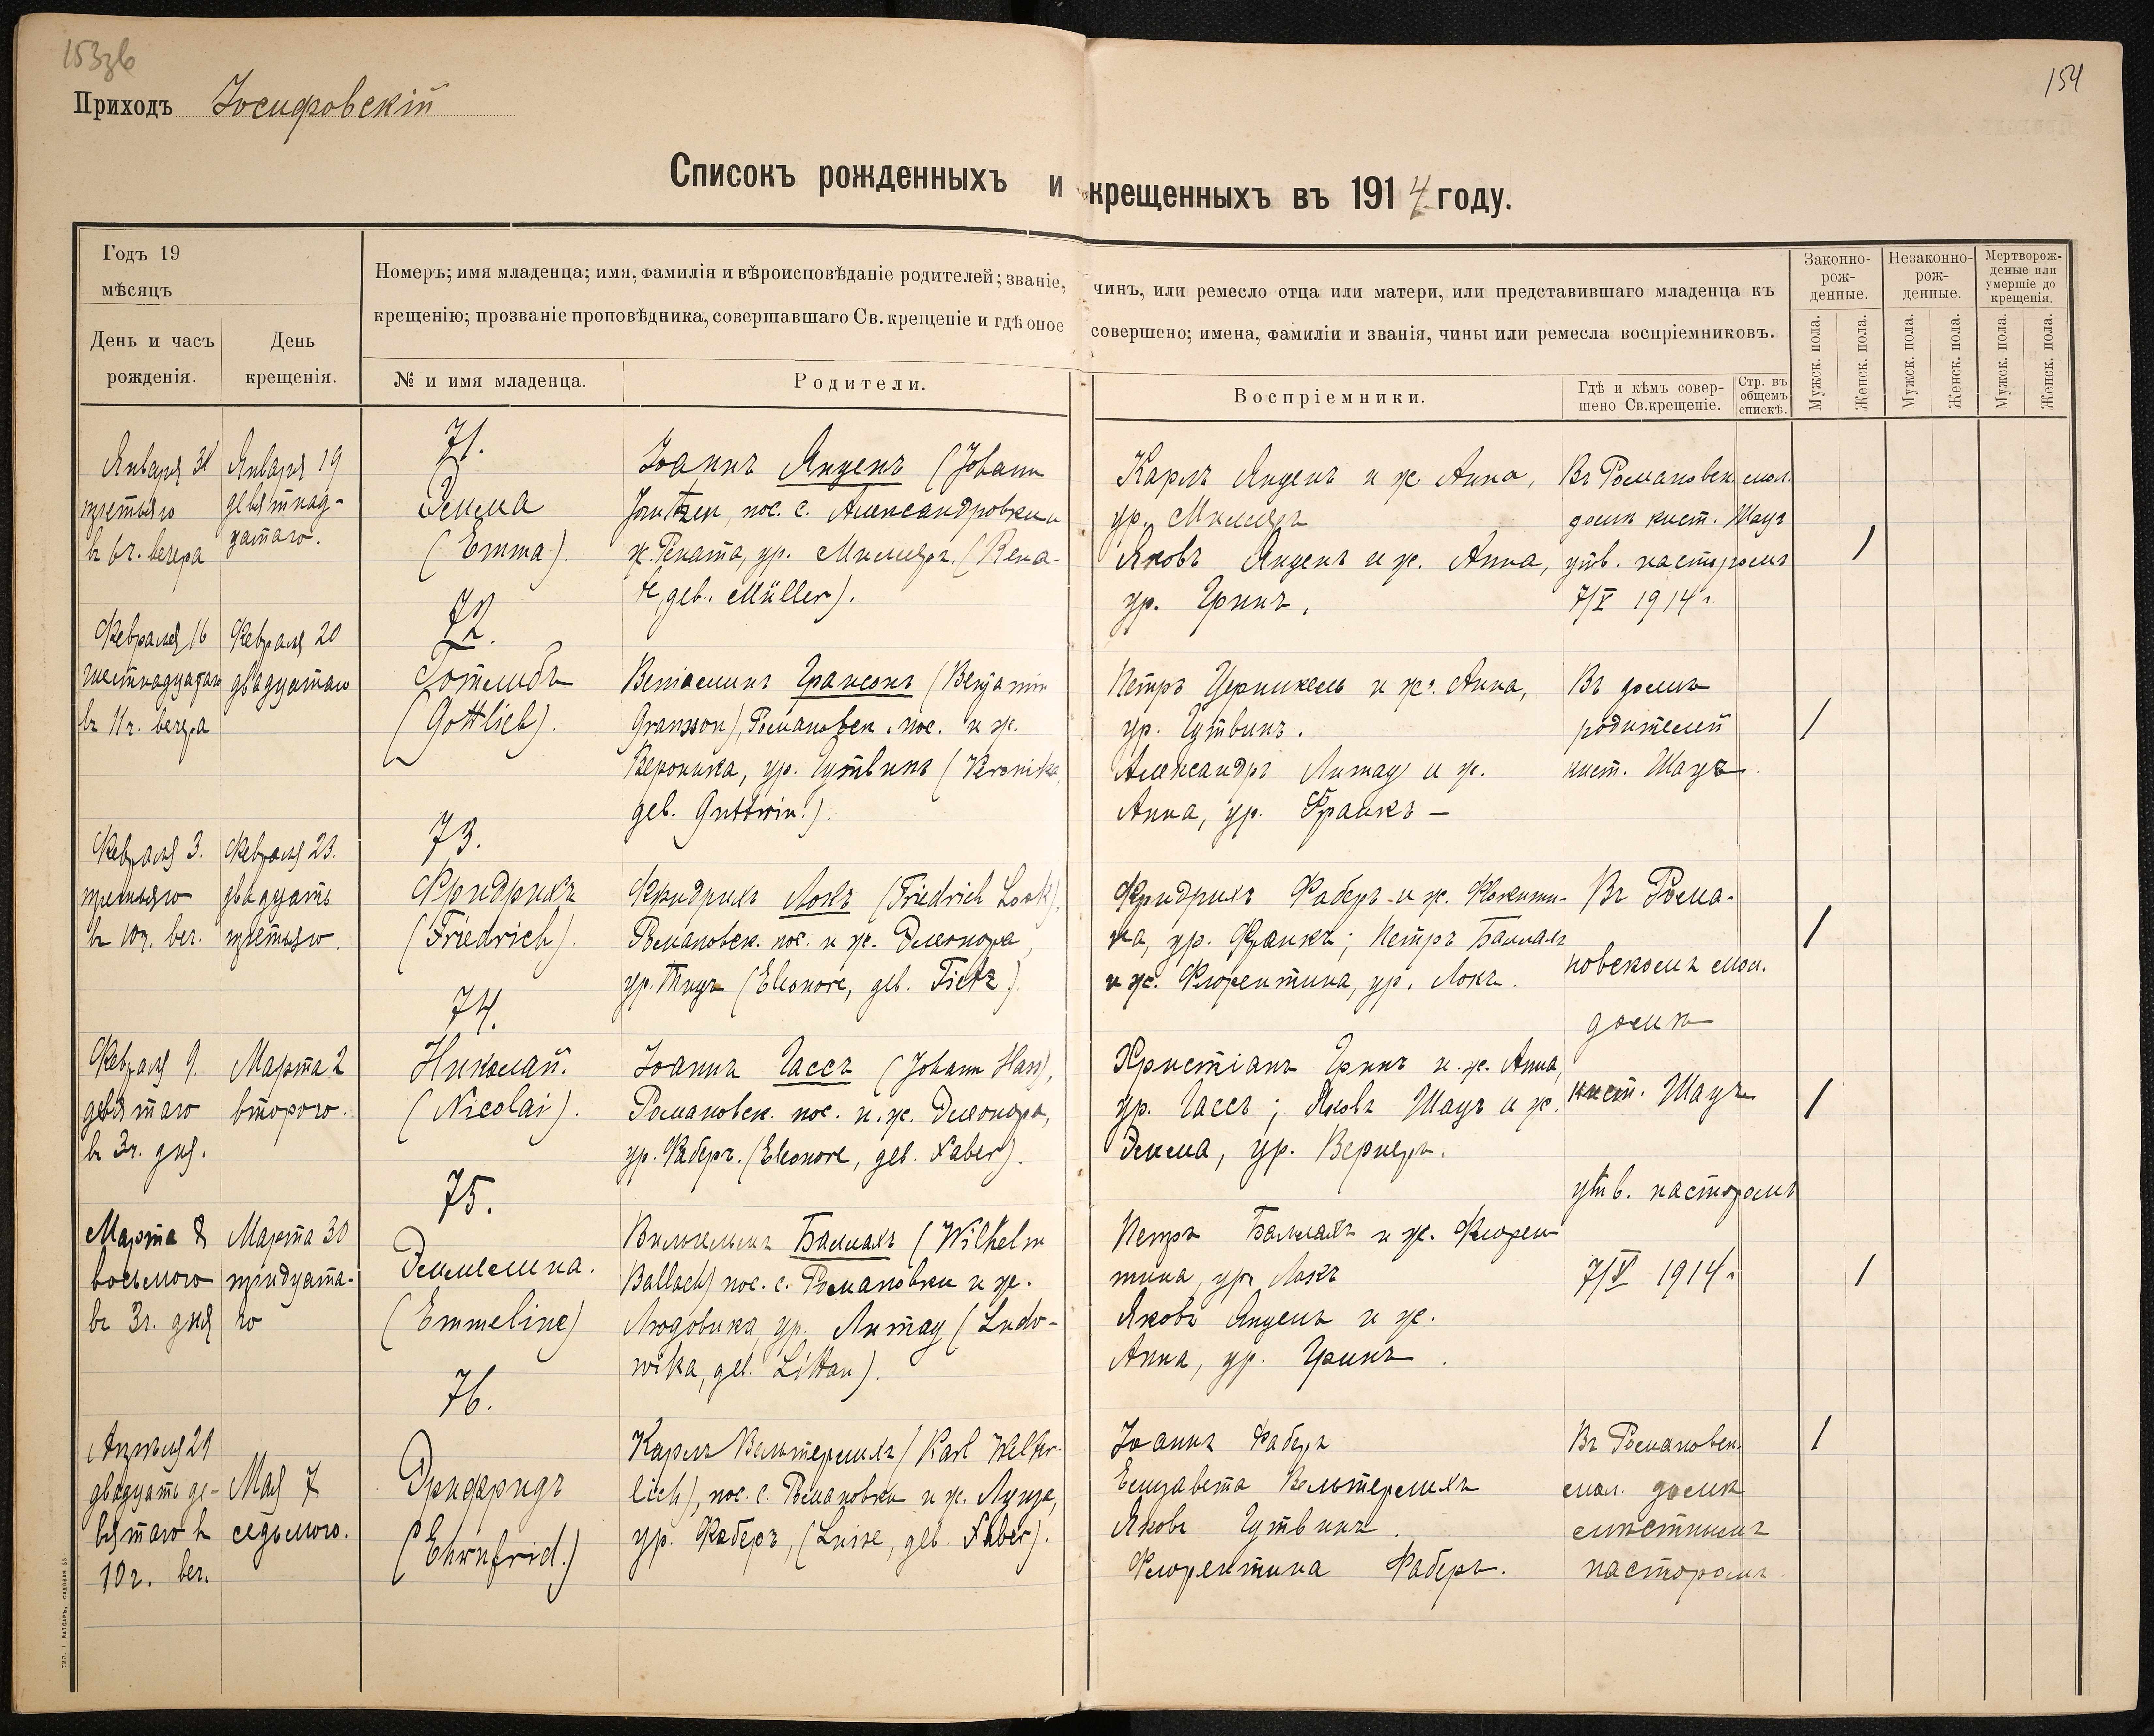 153зб
154
Приходъ Іосифовскій
Списокъ рожденныхъ и крещенныхъ въ 1914 году.
Годъ 19
мѣсяцъ
День и часъ рожденія.
День крещенія.
Номеръ; имя младенца; имя, фамилія и вѣроисповѣданіе родителей; званіе, чинъ, или ремесло отца или матери, или представившаго младенца къ
крещенію; прозваніе проповѣдника, совершавшаго Св. крещеніе и гдѣ оное совершено; имена, фамиліи и званія, чины или ремесла воспріемниковъ.
№ и имя младенца.
Родители.
Воспріемники.
Гдѣ и кѣмъ совершено Св. крещеніе.
Стр. въ общемъ спискѣ.
Законно-рож-денные.
Незаконно-рож-денные.
Мертворож-деные или умершіе до крещенія.
Мужск. пола.
Женск. пола.
Мужск. пола.
Женск. пола.
Мужск. пола.
Женск. пола.
Января 3
третьяго
въ 6 ч. вечера
Января 19
девятнад-
цатаго.
71.
Эмма
(Emma).
Іоаннъ Янценъ (Johann
Jantzen, пос. с. Александровки и
ж. Рената, ур. Миллеръ. (Rena-
te, geb. Müller).
Карлъ Янценъ и ж. Анна,
ур. Миллеръ
Яковъ Янценъ и ж. Анна,
ур. Гринъ.
Въ Романовск. мол.
домѣ кист. Шацъ
утв. пасторомъ
7/V 1914 г.
Февраля 16
шестнадцатаго
въ 11 ч. вечера
Февраля 20
двадцатаго
72.
Готлибъ
(Gottlieb).
Веніаминъ Грансонъ (Benjamin
Gransson), Романовск. пос. и ж.
Вероника, ур. Гутвинъ (Veronika,
geb. Guttwin.).
Петръ Церникель и ж. Анна,
ур. Гутвинъ.
Александръ Литау и ж.
Анна, ур. Франкъ —
Въ домѣ
родителей
кист. Шацъ.
Февраля 3.
третьяго
въ 10 ч. веч.
Февраля 23.
двадцать
третьяго.
73.
Фридрихъ
(Friedrich).
Фридрихъ Локъ (Friedrich Lock),
Романовск. пос. и ж. Элеонора,
ур. Тицъ (Eleonore, geb. Tietz.)
Фридрихъ Фаберъ и ж.
ур. Франкъ; Петръ Баллахъ
и ж. Флорентина, ур. Локъ.
Въ Рома-
новскомъ мол.
домѣ
кист. Шацъ
утв. пасторомъ
7/V 1914 г.
Февраля 9.
девятаго
въ 3 ч. дня.
Марта 2
второго.
74.
Николай.
(Nicolai).
Іоаннъ Гассъ (Johann Hass),
Романовск. пос. и ж. Элеонора,
ур. Фаберъ. (Eleonore, geb. Faber).
Христіанъ Гринъ и ж. Анна,
ур. Гассъ; Яковъ Шацъ и ж.
Эмма, ур. Вернеръ.
Марта 8
восьмого
въ 3 ч. дня
Марта 30
тридцата-
го
75.
Эммелина.
(Emmeline)
Вильгельмъ Баллахъ (Wilhelm
Ballach) пос. с. Романовки и ж.
Людовика, ур. Литау (Ludo-
wika, geb. Littau).
Петръ Баллахъ и ж. Флорен-
тина, ур. Локъ
Яковъ Янценъ и ж.
Анна, ур. Гринъ.
Апрѣля 29
двадцать де-
вятаго въ
10 ч. веч.
Мая 7
седьмого.
76.
Эрнфридъ
(Ehrnfrid.)
Карлъ Вельтерлихъ (Karl Welter-
lich), пос. с. Романовки и ж. Луиза,
ур. Фаберъ, (Luise, geb. Faber).
Іоаннъ Фаберъ
Елизавета Вельтерлихъ
Яковъ Гутвинъ.
Флорентина Фаберъ.
Въ Романовск.
мол. домѣ
мѣстнымъ
пасторомъ.